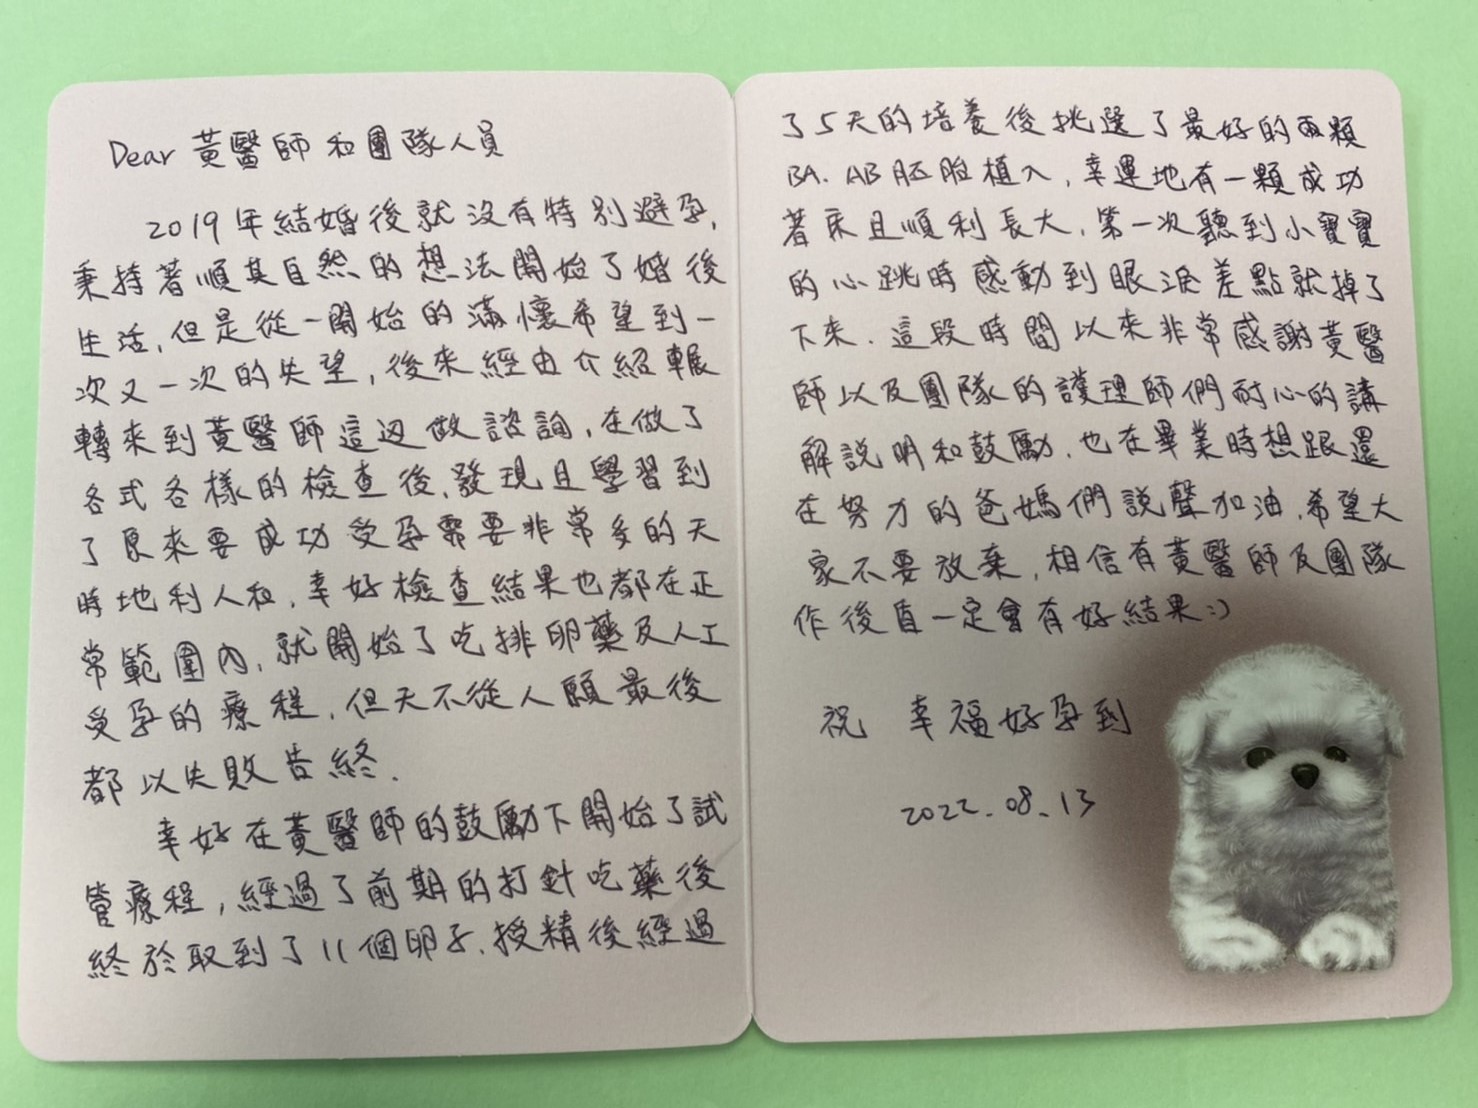 Dear 黃醫師和團隊人員
2019年結婚後就沒有特別避孕,
秉持著順其自然的想法開始了婚後
生活,但是從一開始的滿懷希望到一
次又一次的失望,後來經由介紹輾
轉來到黃醫師這邊做諮詢,在做了
各式各樣的檢查後,發現且學習到
了原來要成功受孕需要非常多的天
時地利人和,幸好檢查結果也都在正
常範圍內,就開始了吃排卵藥及人工
受孕的療程,但天不從人願最後
都以失敗告終.
幸好在黃醫師的鼓勵下開始了試
管療程,經過了前期的打針吃藥後
終於取到了11個卵子,授精後經過
了5天的培養後挑選了最好的兩顆
BA.AB胚胎植入,幸運地有一顆成功
著床且順利長大,第一次聽到小寶寶
的心跳時感動到眼淚差點就掉了
下來.這段時間以來非常感謝黃醫
師以及團隊的護理師們耐心的講
解說明和鼓勵,也在畢業時想跟還
在努力的爸媽們說聲加油,希望大
家不要放棄,相信有黃醫師及團隊
作後盾一定會有好結果:)
祝 幸福好孕到
2022.08.13